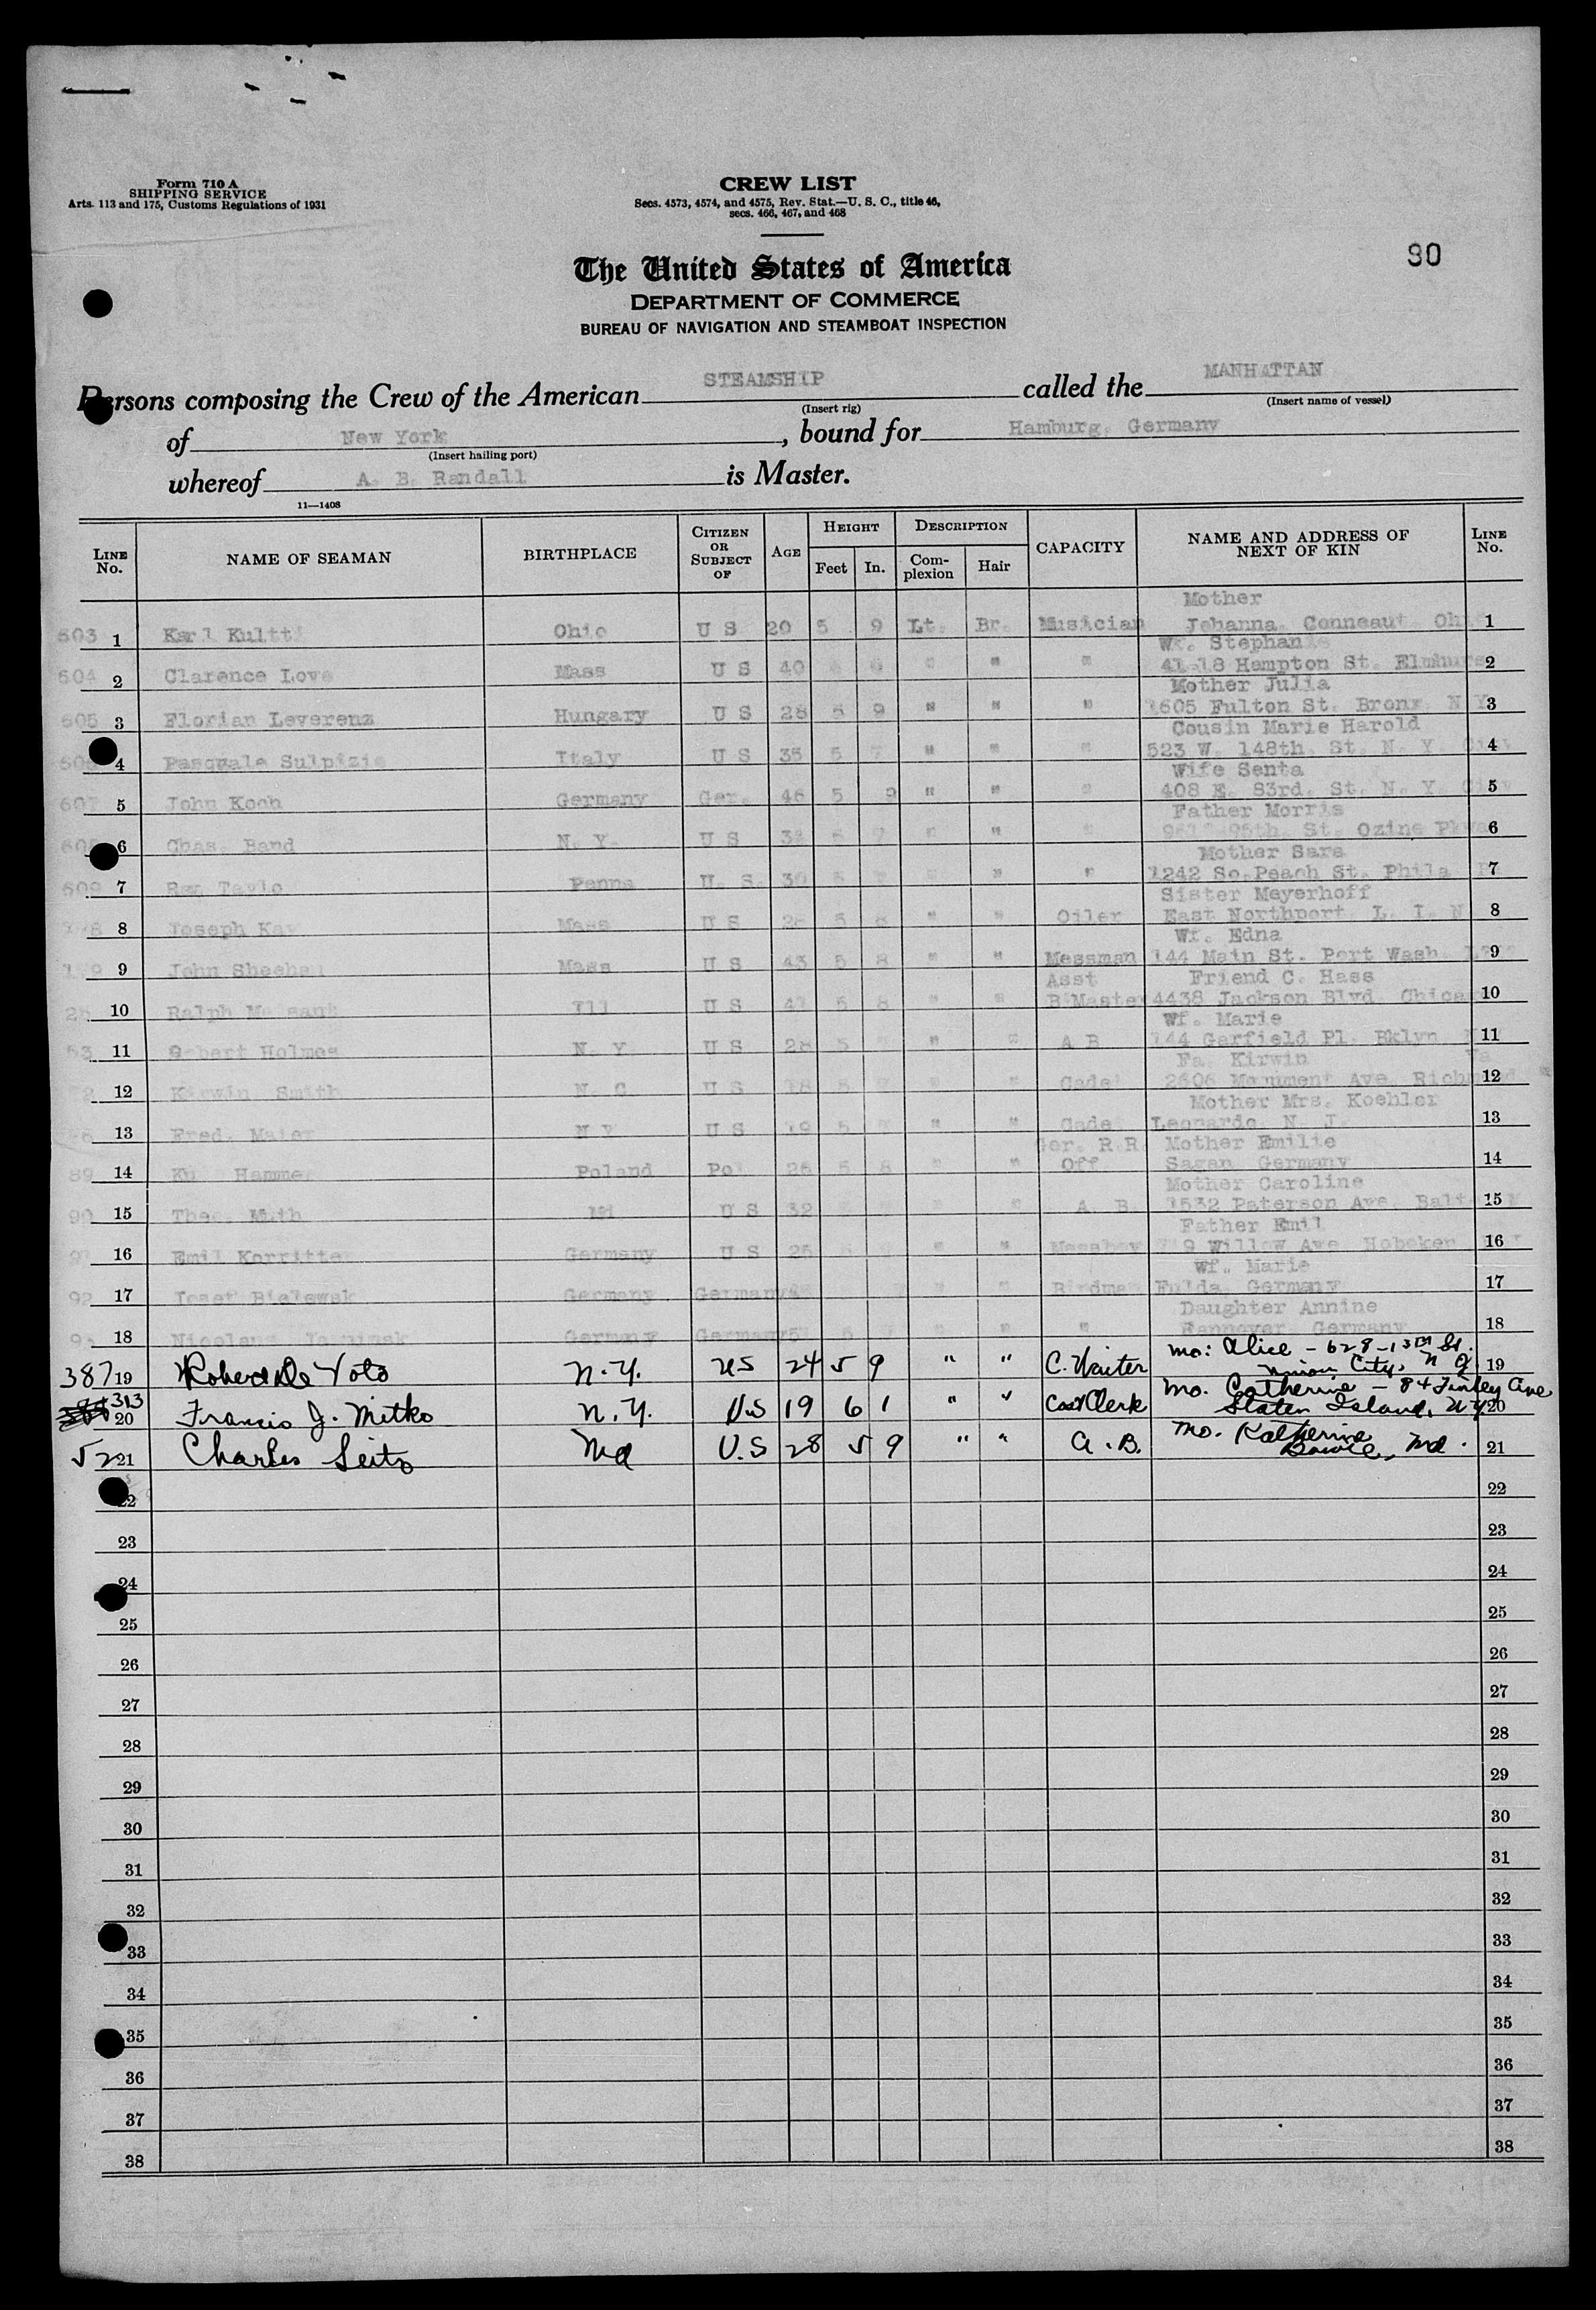 Form 710 A
SHIPPING SERVICE
Arts. 113 and 175, Customs Regulations of 1931
CREW LIST
Secs. 4573, 4574, and 4575, Rev. Stat.—U. S. C., title 46,
secs. 466, 467, and 468
90
The United States of America
DEPARTMENT OF COMMERCE
BUREAU OF NAVIGATION AND STEAMBOAT INSPECTION
Persons composing the Crew of the American STEAMSHIP called the MANHATTAN
(Insert rig) (Insert name of vessel)
of New York, bound for Hamburg, Germany
(Insert hailing port)
whereof A. B. Randall is Master.
11—1408
LINE No. NAME OF SEAMAN BIRTHPLACE CITIZEN OR SUBJECT OF AGE HEIGHT Feet In. DESCRIPTION Complexion Hair CAPACITY NAME AND ADDRESS OF NEXT OF KIN LINE No.
Mother
603 1 Karl Kultti Ohio U S 20 5 9 Lt. Br. Musician Johanna. Conneaut Oh 1
Wf. Stephan
604 2 Clarence Love Mass U S 40 " " " 41-18 Hampton St. 2
Mother Julia
605 3 Florian Leverenz Hungary U S 28 5 9 " " " 1605 Fulton St. Bronx. N Y 3
Cousin Marie Harold
4 Pasquale Sulpizio Italy U S 35 5 7 " " " 523 W. 148th. St. N. Y. City 4
Wife Senta
607 5 John Koch Germany Ger. 46 5 9 " " " 408 E. 83rd. St. N. Y. City 5
Father Morris
6 Chas. Band N. Y. U S " " " 95th. St. Ozine Pk 6
Mother Sara
609 7 Penna U. S. 30 5 " " 1242 So. Peach St. Phila 7
Sister Meyerhoff
8 Joseph Kay Mass U S 5 8 " " Oiler East Northport L. I. N 8
Wf. Edna
9 John Sheehan Mass U S 43 5 8 " " Messman 144 Main St. Port Wash. 9
Asst Friend C. Hass
10 Ralph Ill U S 41 5 8 " " B Maste 4438 Jackson Blvd Chica 10
Wf. Marie
53 11 Robert Holmes N. Y. U S 28 5 " " A B 144 Garfield Pl. Bklyn 11
Fa. Kirwin Va
12 Kirwin Smith N. C. U S 18 5 " " Cadet 2606 Monument Ave. Richmond 12
Mother Mrs. Koehler
13 Fred. Maier N Y U S 19 5 " " Cade Leonardo. N. J. 13
Ger. R.R. Mother Emilie
89 14 Hammer Poland Po 26 5 8 " " Off Sagan Germany 14
Mother Caroline
90 15 Theo. Muth U S 32 " A. B. 1532 Paterson Ave. Balt 15
Father Emil
16 Emil Korritte Germany U S 25 " " Messboy Willow Ave Hoboken 16
Wf. Marie
92 17 Josef Bielewsk Germany Germany " " Fulda. Germany 17
Daughter Annine
18 Germany Germany " " " Hannover Germany 18
387 19 Robert De Voto N.Y. US 24 5 9 " " C. Waiter Mo: Alice - 628-13th St. 19
Union City, N J
313 20 Francis J. Mitko N.Y. U.S 19 6 1 " " Clerk Mo. Catherine - 84 Finley Ave
Staten Island, N.Y. 20
52 21 Charles Seitz Md U.S 28 5 9 " " A.B. Mo. Katherine
Bowie, Md. 21
22 22
23 23
24 24
25 25
26 26
27 27
28 28
29 29
30 30
31 31
32 32
33 33
34 34
35 35
36 36
37 37
38 38